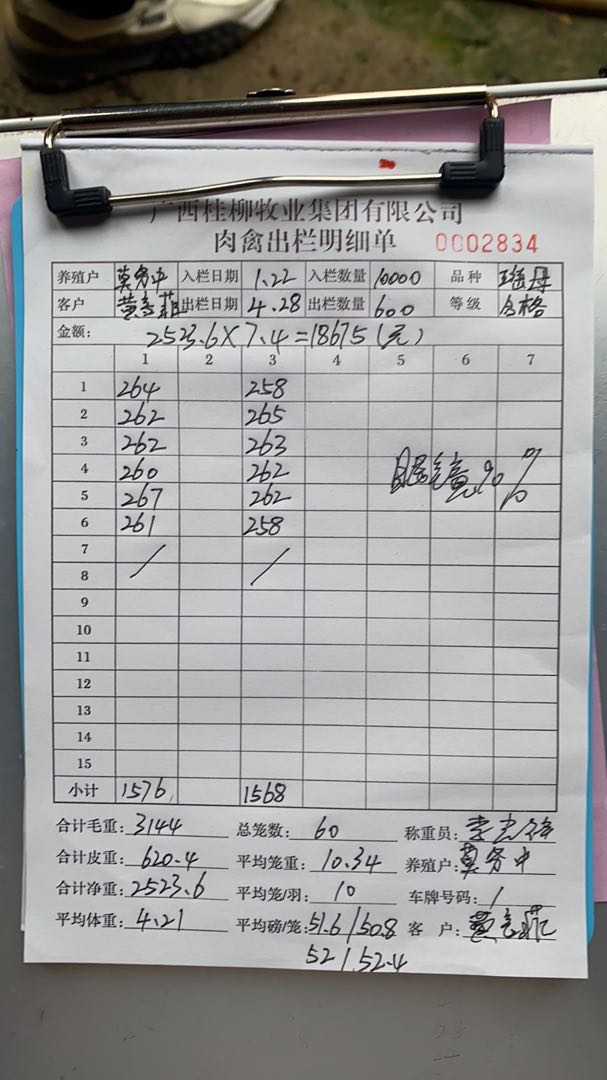 广西桂柳牧业集团有限公司
肉禽出栏明细单 0002834
养殖户 莫务中 入栏日期 1.22 入栏数量 10000 品种 瑶母
客户 出栏日期 4.28 出栏数量 600 等级 合格
金额: 2523.6×7.4=18675(元)
1 2 3 4 5 6 7
1 264 258
2 262 265
3 262 263
4 260 262
5 267 262
6 261 258
7 / /
8
9
10
11
12
13
14
15
小计 1576 1568
合计毛重: 3144 总笼数: 60 称重员:
合计皮重: 620.4 平均笼重: 10.34 养殖户: 莫务中
合计净重: 2523.6 平均笼/羽: 10 车牌号码: /
平均体重: 4.21 平均磅/笼: 51.6/50.8 客户:
52/52.4